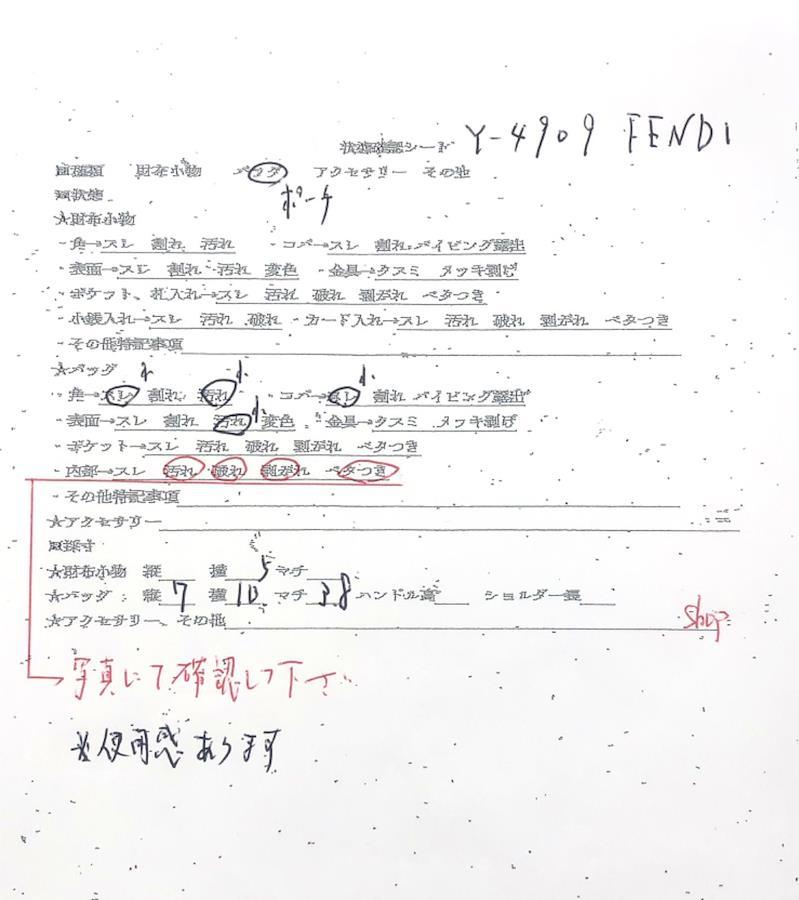 状態確認シート Y-4909 FENDI
■種類 財布小物 バッグ アクセサリー その他
ポーチ
■状態
★財布小物
・角→スレ 割れ 汚れ ・コバ→スレ 割れ パイピング露出
・表面→スレ 割れ 汚れ 変色 ・金具→クスミ メッキ剥げ
・ポケット、札入れ→スレ 汚れ 破れ 剥がれ ベタつき
・小銭入れ→スレ 汚れ 破れ ・カード入れ→スレ 汚れ 破れ 剥がれ ベタつき
・その他特記事項
★バッグ
・角→スレ 割れ 汚れ ・コバ→スレ 割れ パイピング露出
・表面→スレ 割れ 汚れ 変色 ・金具→クスミ メッキ剥げ
・ポケット→スレ 汚れ 破れ 剥がれ ベタつき
・内部→スレ 汚れ 破れ 剥がれ ベタつき
・その他特記事項
★アクセサリー
■採寸
★財布小物 縦 横 マチ
★バッグ: 縦 7 横 10.5 マチ 3.8 ハンドル高 ショルダー長
★アクセサリー、その他
shop
写真にて確認して下さい
※使用感あります